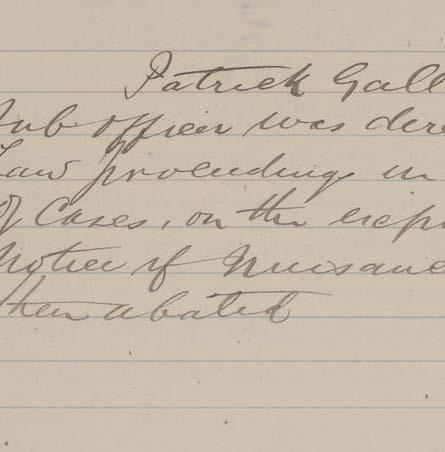 Patrick Gall
Sub officer was dire
Law proceedings in
of Cases, on the expi
Notice of Nuisance
then abated